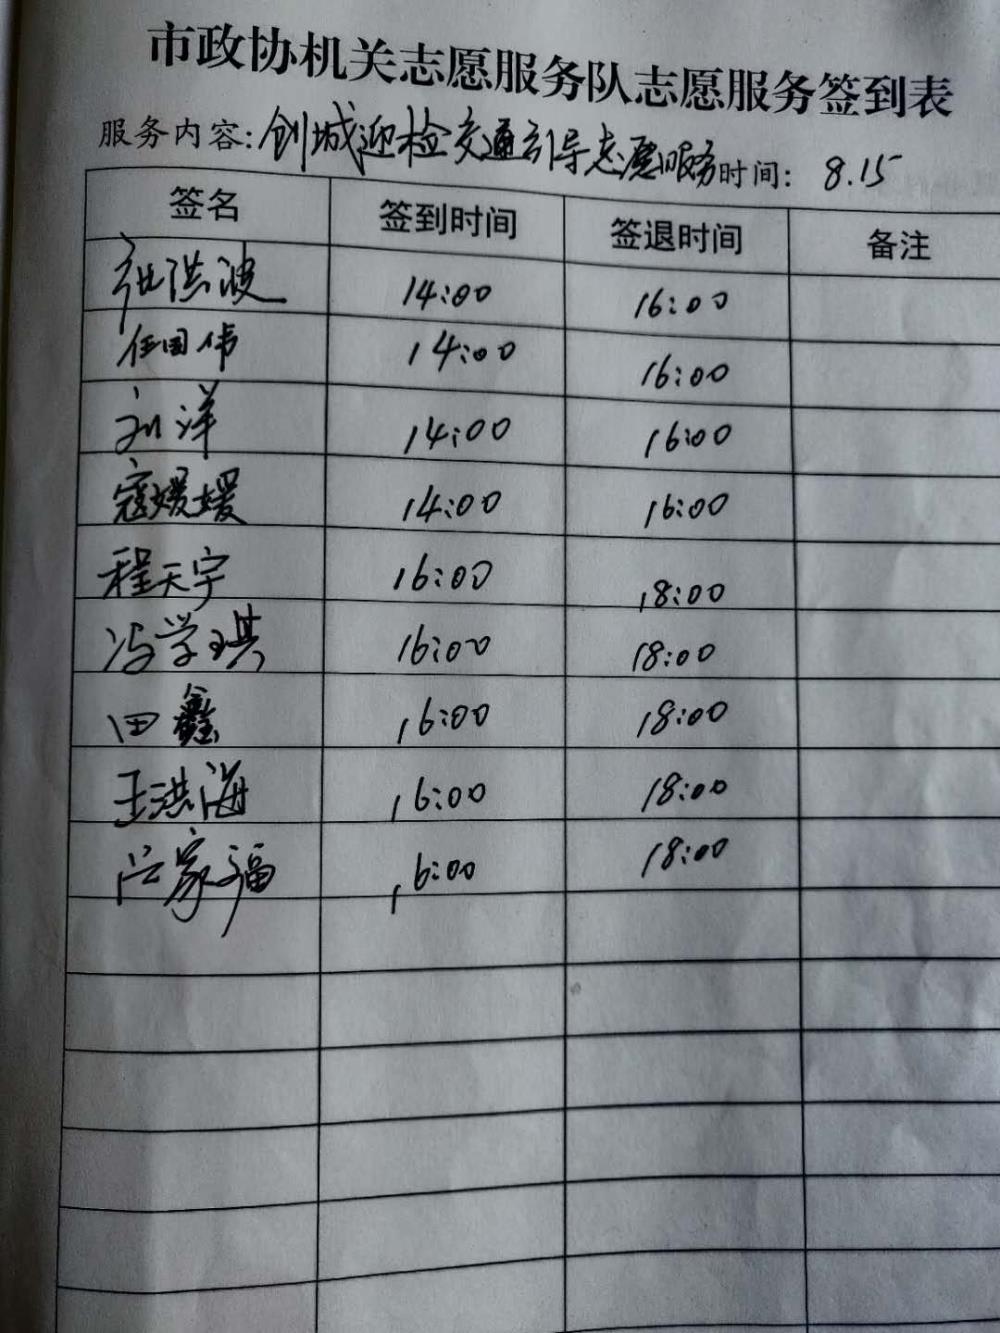 市政协机关志愿服务队志愿服务签到表
服务内容:创城迎检交通引导志愿服务时间: 8.15
签名 签到时间 签退时间 备注
张洪波 14:00 16:00
任国伟 14:00 16:00
刘洋 14:00 16:00
寇媛媛 14:00 16:00
程天宇 16:00 18:00
冯学琪 16:00 18:00
田鑫 16:00 18:00
王洪海 16:00 18:00
家福 16:00 18:00